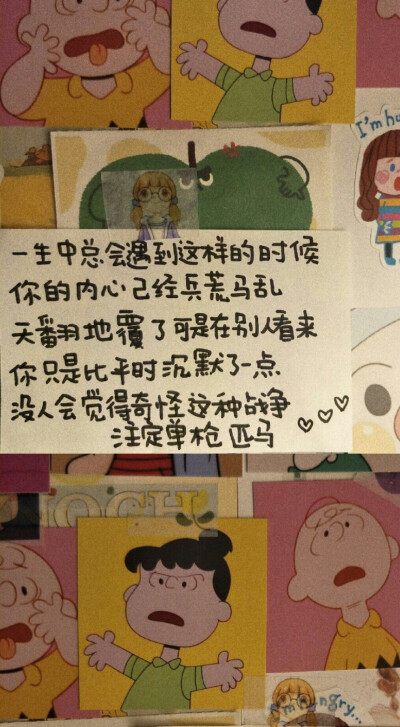 I'm hu
一生中总会遇到这样的时候
你的内心已经兵荒马乱
天翻地覆了可是在别人看来
你只是比平时沉默了一点
没人会觉得奇怪这种战争
注定单枪匹马
OCH
I'm hungry...